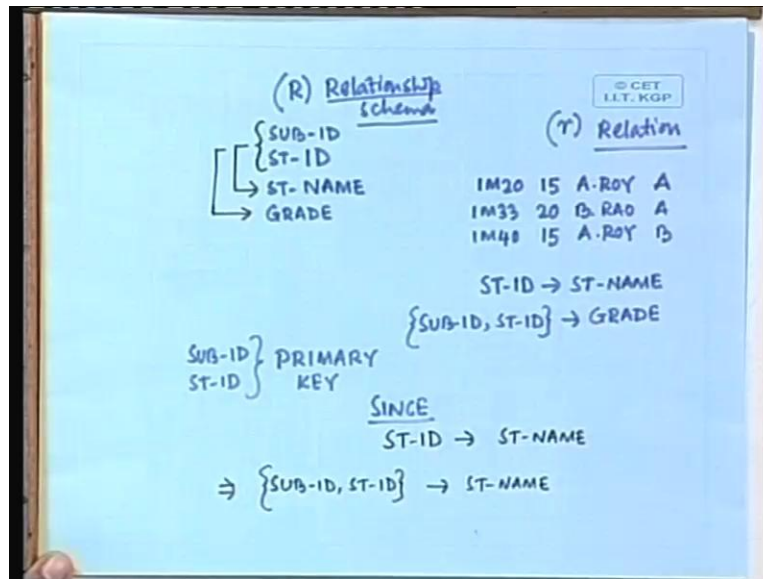 (R) Relationship
Schema
© CET
I.I.T. KGP
{SUB-ID
ST-ID
→ ST-NAME
→ GRADE
(r) Relation
IM20 15 A.ROY A
IM33 20 B.RAO A
IM40 15 A.ROY B
ST-ID → ST-NAME
{SUB-ID, ST-ID} → GRADE
SUB-ID
ST-ID} PRIMARY
KEY
SINCE
ST-ID → ST-NAME
⇒ {SUB-ID, ST-ID} → ST-NAME